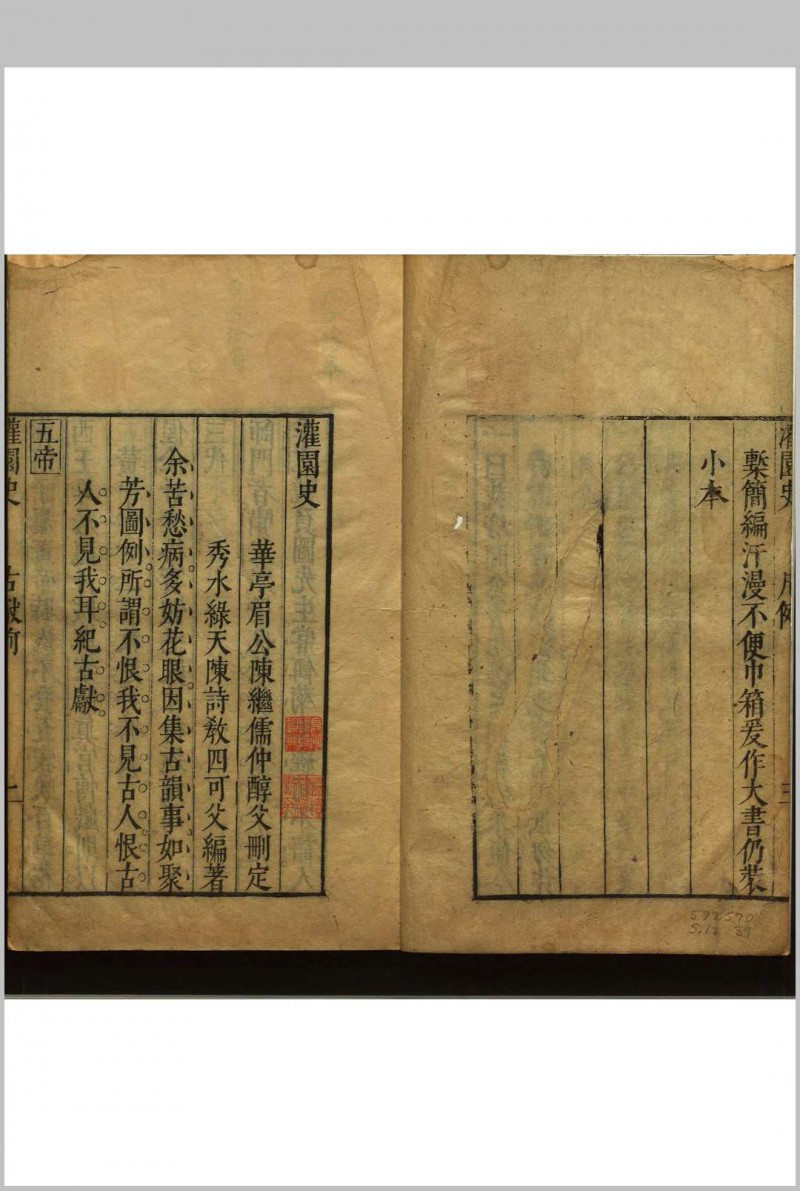 槩簡編汗漫不便巾箱爰作大書仍裝
小本
灌園史
華亭眉公陳繼儒仲醇父刪定
秀水綠天陳詩教四可父編著
余苦愁病多妨花眼因集古韻事如聚
芳圖例所謂不恨我不見古人恨古
人不見我耳紀古獻
五帝
灌園史
古獻前
一
592570